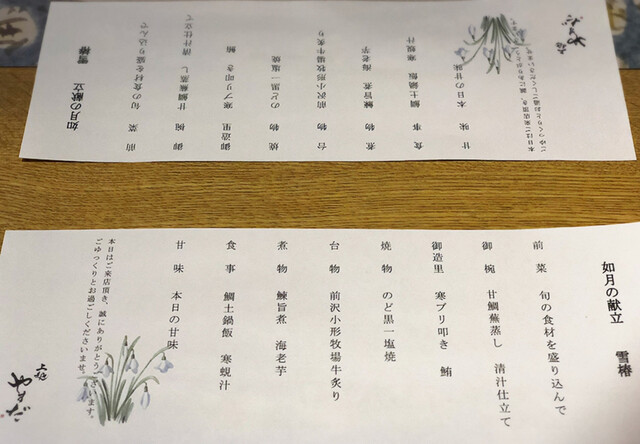 如月の献立　雪椿
前　菜　旬の食材を盛り込んで
御　椀　甘鯛蕪蒸し　清汁仕立て
御造里　寒ブリ叩き　鮪
焼　物　のど黒一塩焼
台　物　前沢小形牧場牛炙り
煮　物　鰊旨煮　海老芋
食　事　鯛土鍋飯　寒蜆汁
甘　味　本日の甘味
本日はご来店頂き、誠にありがとうございます。
ごゆっくりとお過ごしくださいませ。
如月の献立　雪椿
前　菜　旬の食材を盛り込んで
御　椀　甘鯛蕪蒸し　清汁仕立て
御造里　寒ブリ叩き　鮪
焼　物　のど黒一塩焼
台　物　前沢小形牧場牛炙り
煮　物　鰊旨煮　海老芋
食　事　鯛土鍋飯　寒蜆汁
甘　味　本日の甘味
本日はご来店頂き、誠にありがとうございます。
ごゆっくりとお過ごしくださいませ。